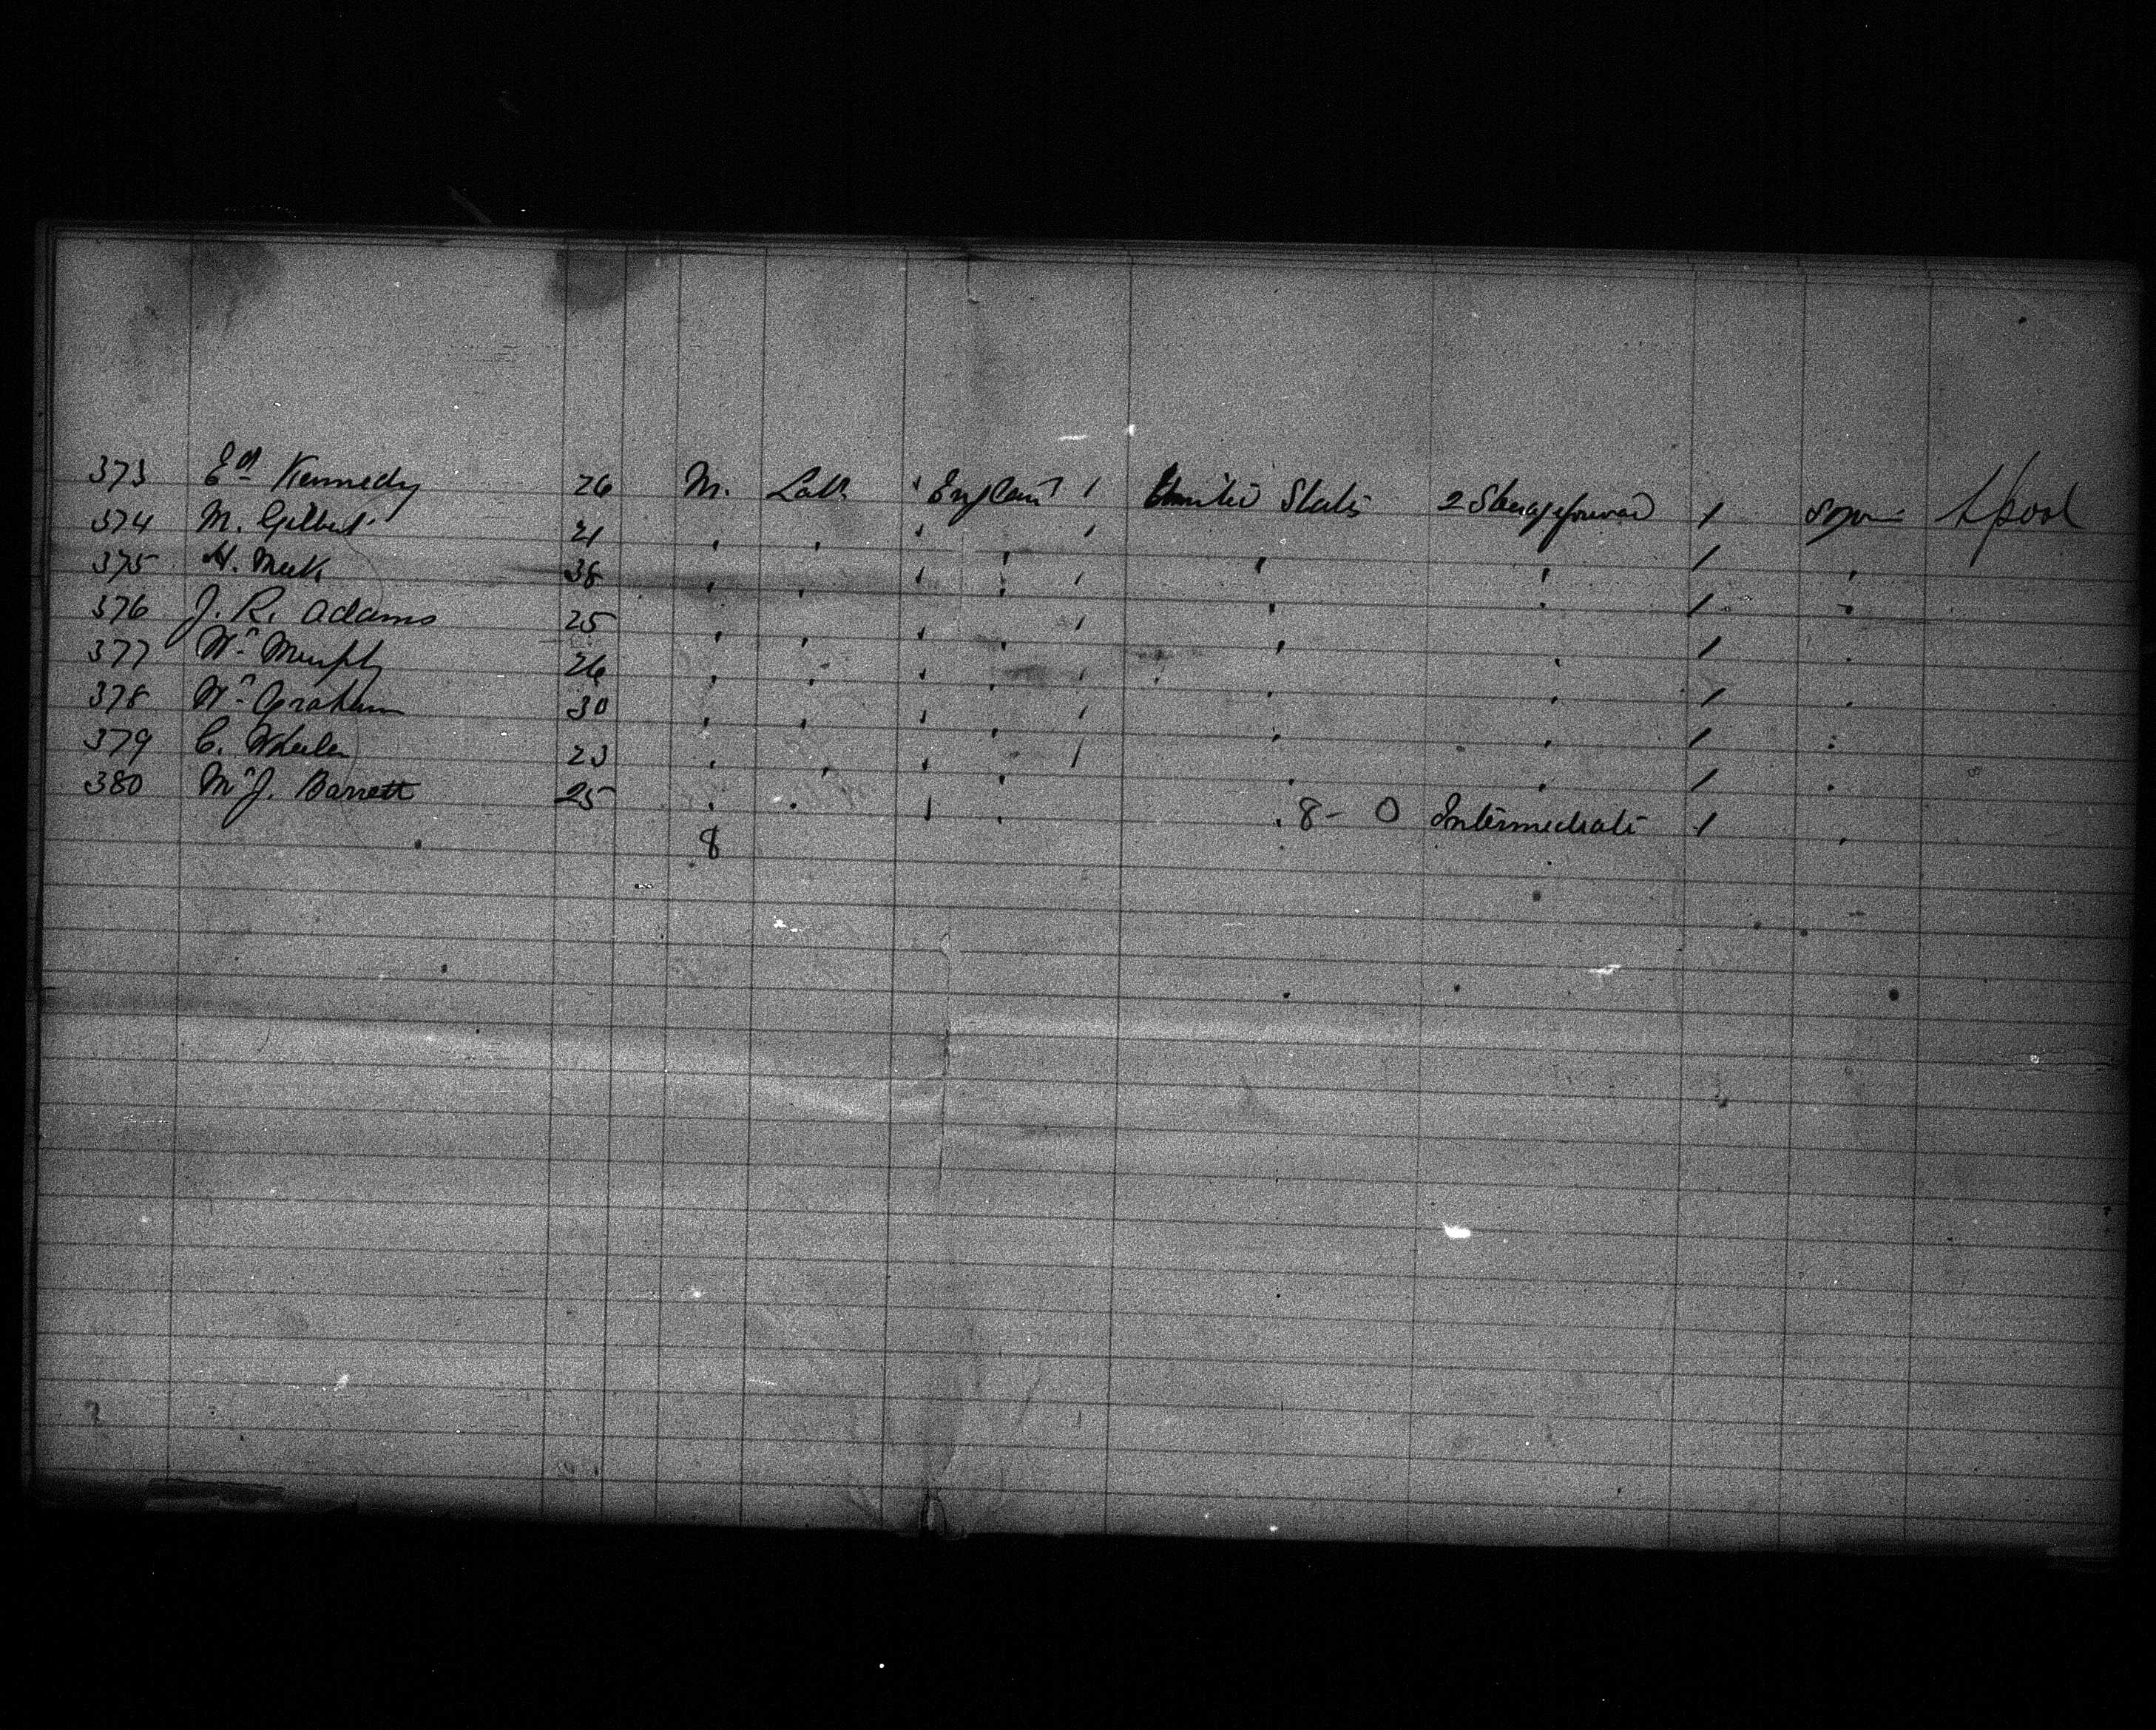 373 Ed Kennedy 26 M. Lab. ' England 1 United States 2 Steerage forward 1 L'pool
374 M. Gilbert 21 , , ' , 1 ' ' 1 ,
375 H. Meek 38 , , ' , 1 , . 1 ,
376 J. R. Adams 25 , , ' , 1 , , 1 .
377 Wm Murphy 26 , , ' , 1 , , 1 .
378 Wm Graham 30 , , ' , 1 , , 1 .
379 C. Wheeler 23 , , ' , 1 , , 1 .
380 Mr J. Barrett 25 . . 1 . . 8 - 0 Intermediate 1 ,
8